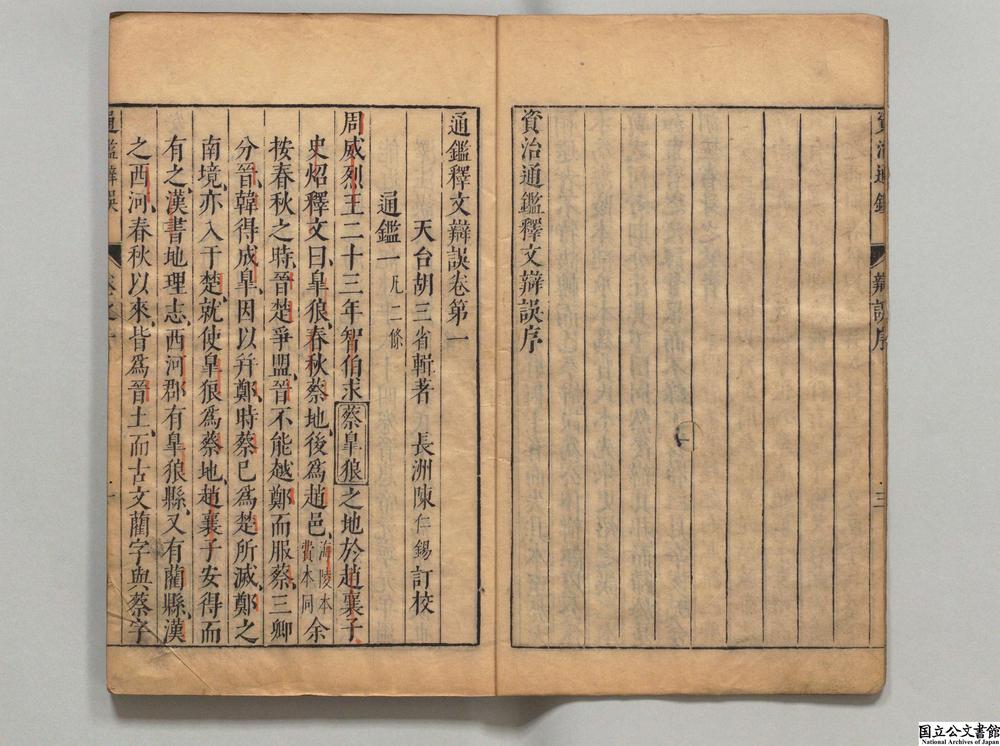 資治通鑑 辯誤序 三
資治通鑑釋文辯誤序
通鑑釋文辯誤卷第一
天台胡三省輯著 長洲陳仁錫訂校
通鑑一 凡二條
周威烈王二十三年智伯求蔡皐狼之地於趙襄子
史炤釋文曰皐狼春秋蔡地後爲趙邑 海陵本費本同 余
按春秋之時晉楚爭盟晉不能越鄭而服蔡三卿
分晉韓得成皐因以幷鄭時蔡已爲楚所滅鄭之
南境亦入于楚就使皐狼爲蔡地趙襄子安得而
有之漢書地理志西河郡有皐狼縣又有藺縣漢
之西河春秋以來皆爲晉土而古文藺字與蔡字
通鑑辯誤 卷之一 一
国立公文書館
National Archives of Japan